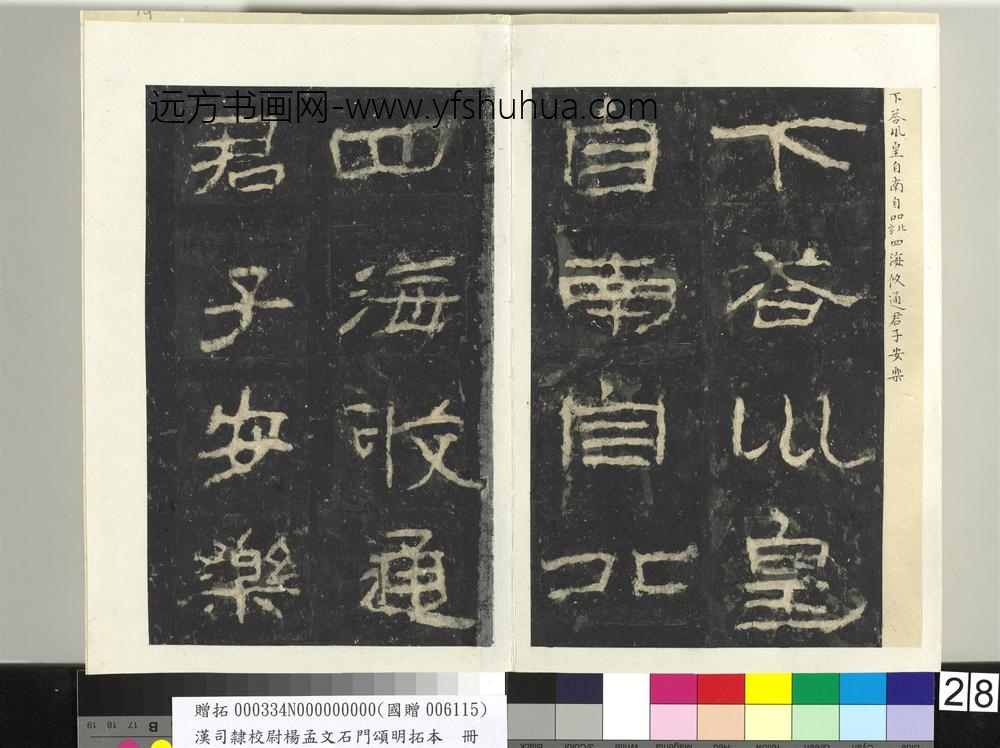 远方书画网-www.yfshuhua.com
下荅坤皇
自南自北
四海攸通
君子安樂
贈拓 000334N000000000(國贈 006115)
漢司隸校尉楊孟文石門頌明拓本 冊
28